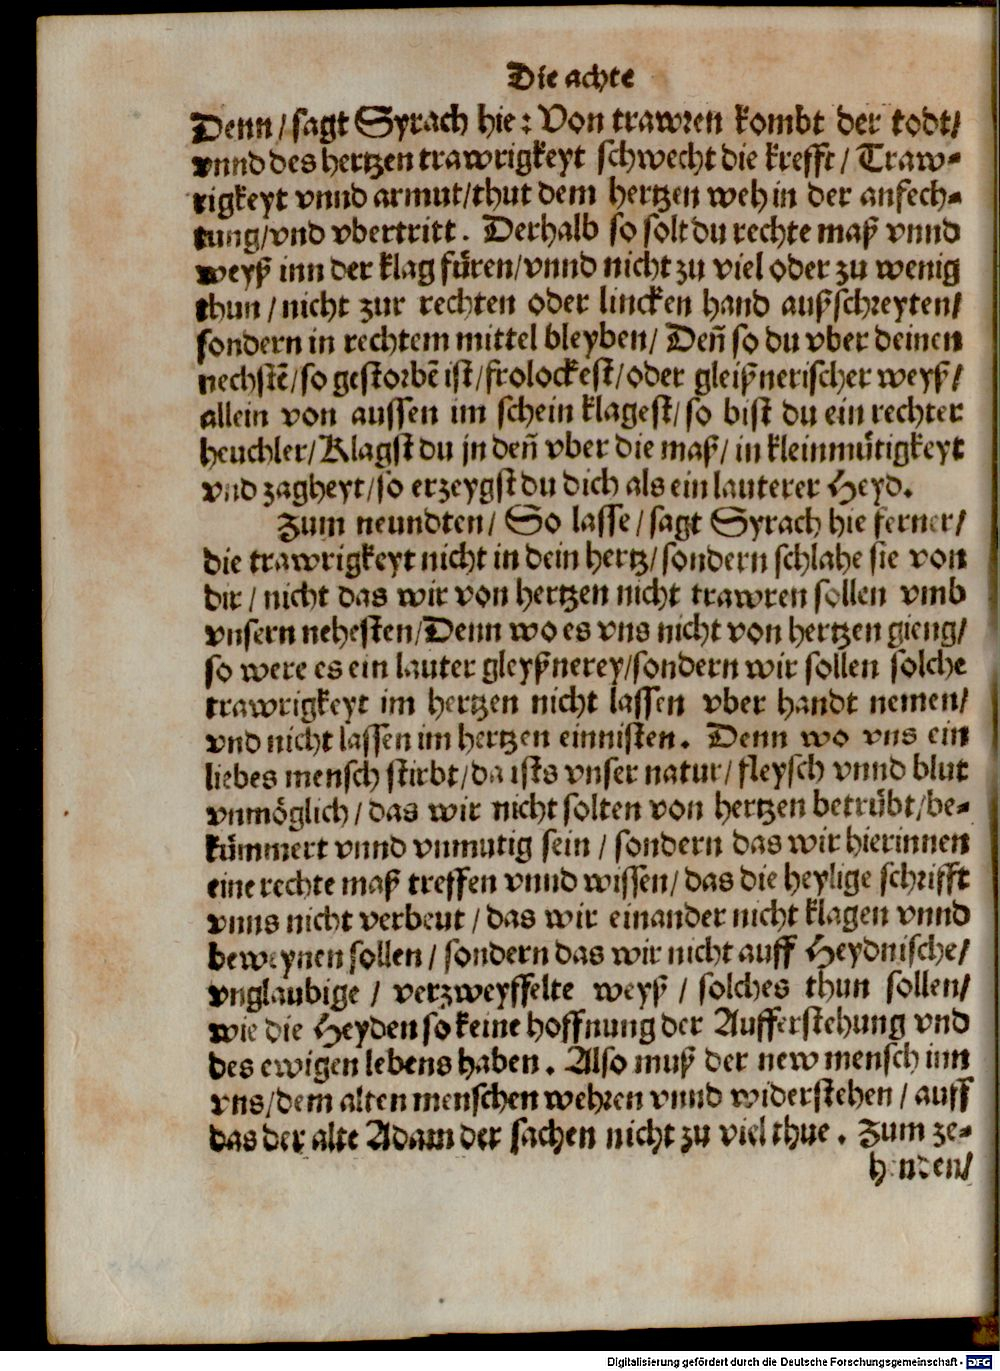 Die achte
Denn / sagt Syrach hie: Von trawren kombt der todt/
vnnd des hertzen trawrigkeyt schwecht die krefft / Traw-
rigkeyt vnnd armut/thut dem hertzen weh in der anfech-
tung/vnd vbertritt. Derhalb so solt du rechte maß vnnd
weyß inn der klag füren/vnnd nicht zu viel oder zu wenig
thun / nicht zur rechten oder lincken hand außschreyten/
sondern in rechtem mittel bleyben/ Deñ so du vber deinen
nechstẽ/so gestorbẽ ist/frolockest/oder gleißnerischer weyß/
allein von aussen im schein klagest/so bist du ein rechter
heuchler/Klagst du jn deñ vber die maß/ in kleinmütigkeyt
vnd zagheyt/so erzeygst du dich als ein lauterer Heyd.
Zum neundten/ So lasse/sagt Syrach hie ferner/
die trawrigkeyt nicht in dein hertz/sondern schlahe sie von
dir / nicht das wir von hertzen nicht trawren sollen vmb
vnsern nehesten/Denn wo es vns nicht von hertzen gieng/
so were es ein lauter gleyßnerey/sondern wir sollen solche
trawrigkeyt im hertzen nicht lassen vber handt nemen/
vnd nicht lassen im hertzen einnisten. Denn wo vns ein
liebes mensch stirbt/da ists vnser natur/ fleysch vnnd blut
vnmöglich/das wir nicht solten von hertzen betrübt/be-
kümmert vnnd vnmutig sein / sondern das wir hierinnen
eine rechte maß treffen vnnd wissen/das die heylige schrifft
vnns nicht verbeut / das wir einander nicht klagen vnnd
beweynen sollen / sondern das wir nicht auff Heydnische/
vnglaubige / verzweyffelte weyß / solches thun sollen/
wie die Heyden so keine hoffnung der Aufferstehung vnd
des ewigen lebens haben. Also muß der new mensch inn
vns/dem alten menschen wehren vnnd widerstehen / auff
das der alte Adam der sachen nicht zu viel thue. Zum ze-
henden/
Digitalisierung gefördert durch die Deutsche Forschungsgemeinschaft - DFG